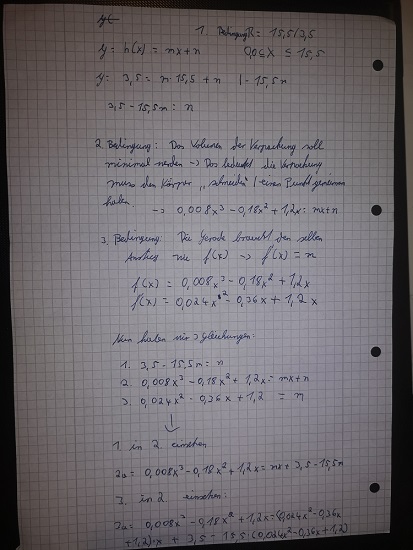 1. Bedingung R = 15,5/3,5
y = h(x) = mx+n 0,0 ≤ x ≤ 15,5
y = 3,5 = m·15,5 + n | - 15,5m
3,5 - 15,5m = n
2. Bedingung: Das Volumen der Verpackung soll
minimal werden → Das bedeutet die Verpackung
muss den Körper „schneiden“ / einen Punkt gemeinsam
haben.
→ 0,008x³ - 0,18x² + 1,2x = mx+n
3. Bedingung: Die Gerade braucht den selben
Anstieg wie f(x) → f'(x) = m
f(x) = 0,008x³ - 0,18x² + 1,2x
f'(x) = 0,024x² - 0,36x + 1,2x
Nun haben wir 3 Gleichungen:
1. 3,5 - 15,5m = n
2. 0,008x³ - 0,18x² + 1,2x = mx+n
3. 0,024x² - 0,36x + 1,2 = m
↓
1. in 2. einsetzen
2a = 0,008x³ - 0,18x² + 1,2x = mx + 3,5 - 15,5m
3. in 2. einsetzen:
3a = 0,008x³ - 0,18x² + 1,2x = (0,024x² - 0,36x
+1,2)·x + 3,5 - 15,5·(0,024x² - 0,36x + 1,2)